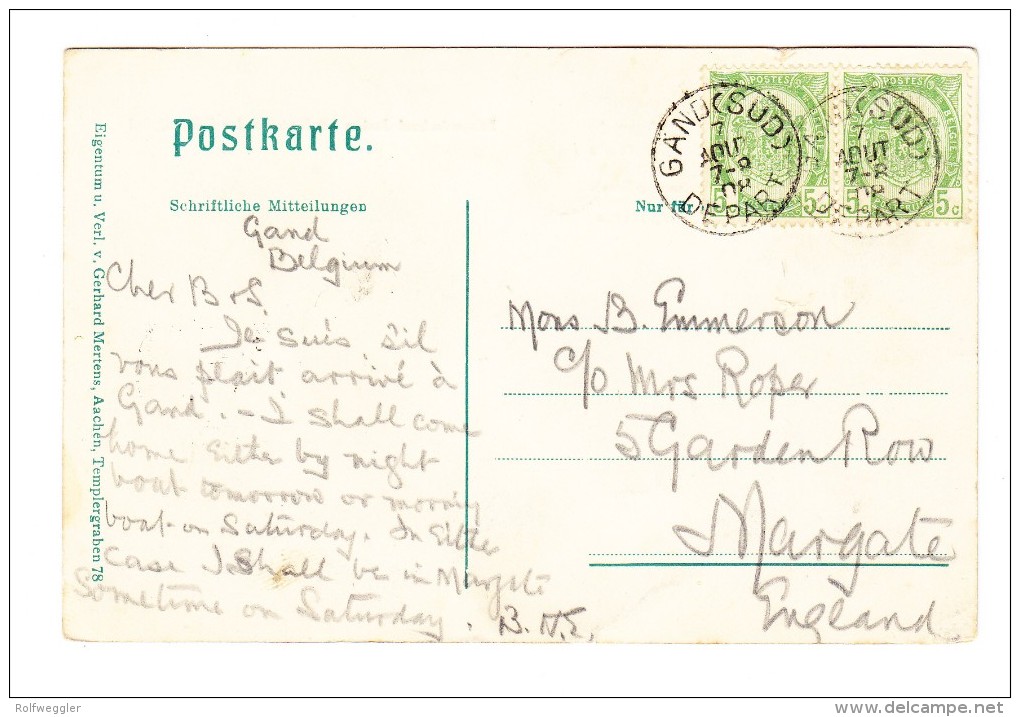 Postkarte.
Schriftliche Mitteilungen
Nur für
Eigentum u. Verl. v. Gerhard Mertens, Aachen, Templergraben 78
POSTES
POSTES
5
5
5 c
GAND (SUD)
7
AOUT
7-8
08
DEPART
(SUD)
7
AOUT
7-8
08
DEPART
Gand
Belgium
Cher B & S.
Je suis s'il
vous plait arrivé à
Gand. - I shall come
home Either by night
boat tomorrow or morning
boat on Saturday. In Either
case I shall be in Margate
Sometime on Saturday.
B. N. E.
Mons B. Emmerson
c/o Mrs Roper
5 Garden Row
Margate
England
Rolfweggler
www.delcampe.net